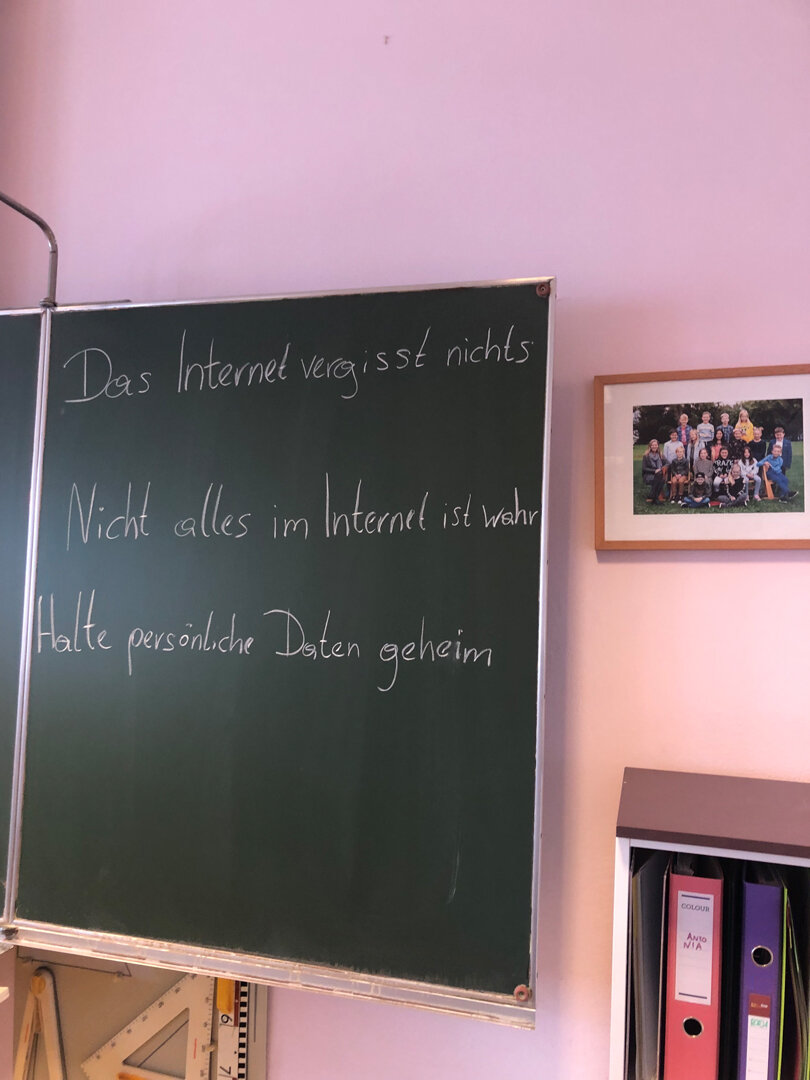 Das Internet vergisst nichts
Nicht alles im Internet ist wahr
Halte persönliche Daten geheim
COLOUR
ANTO
NIA